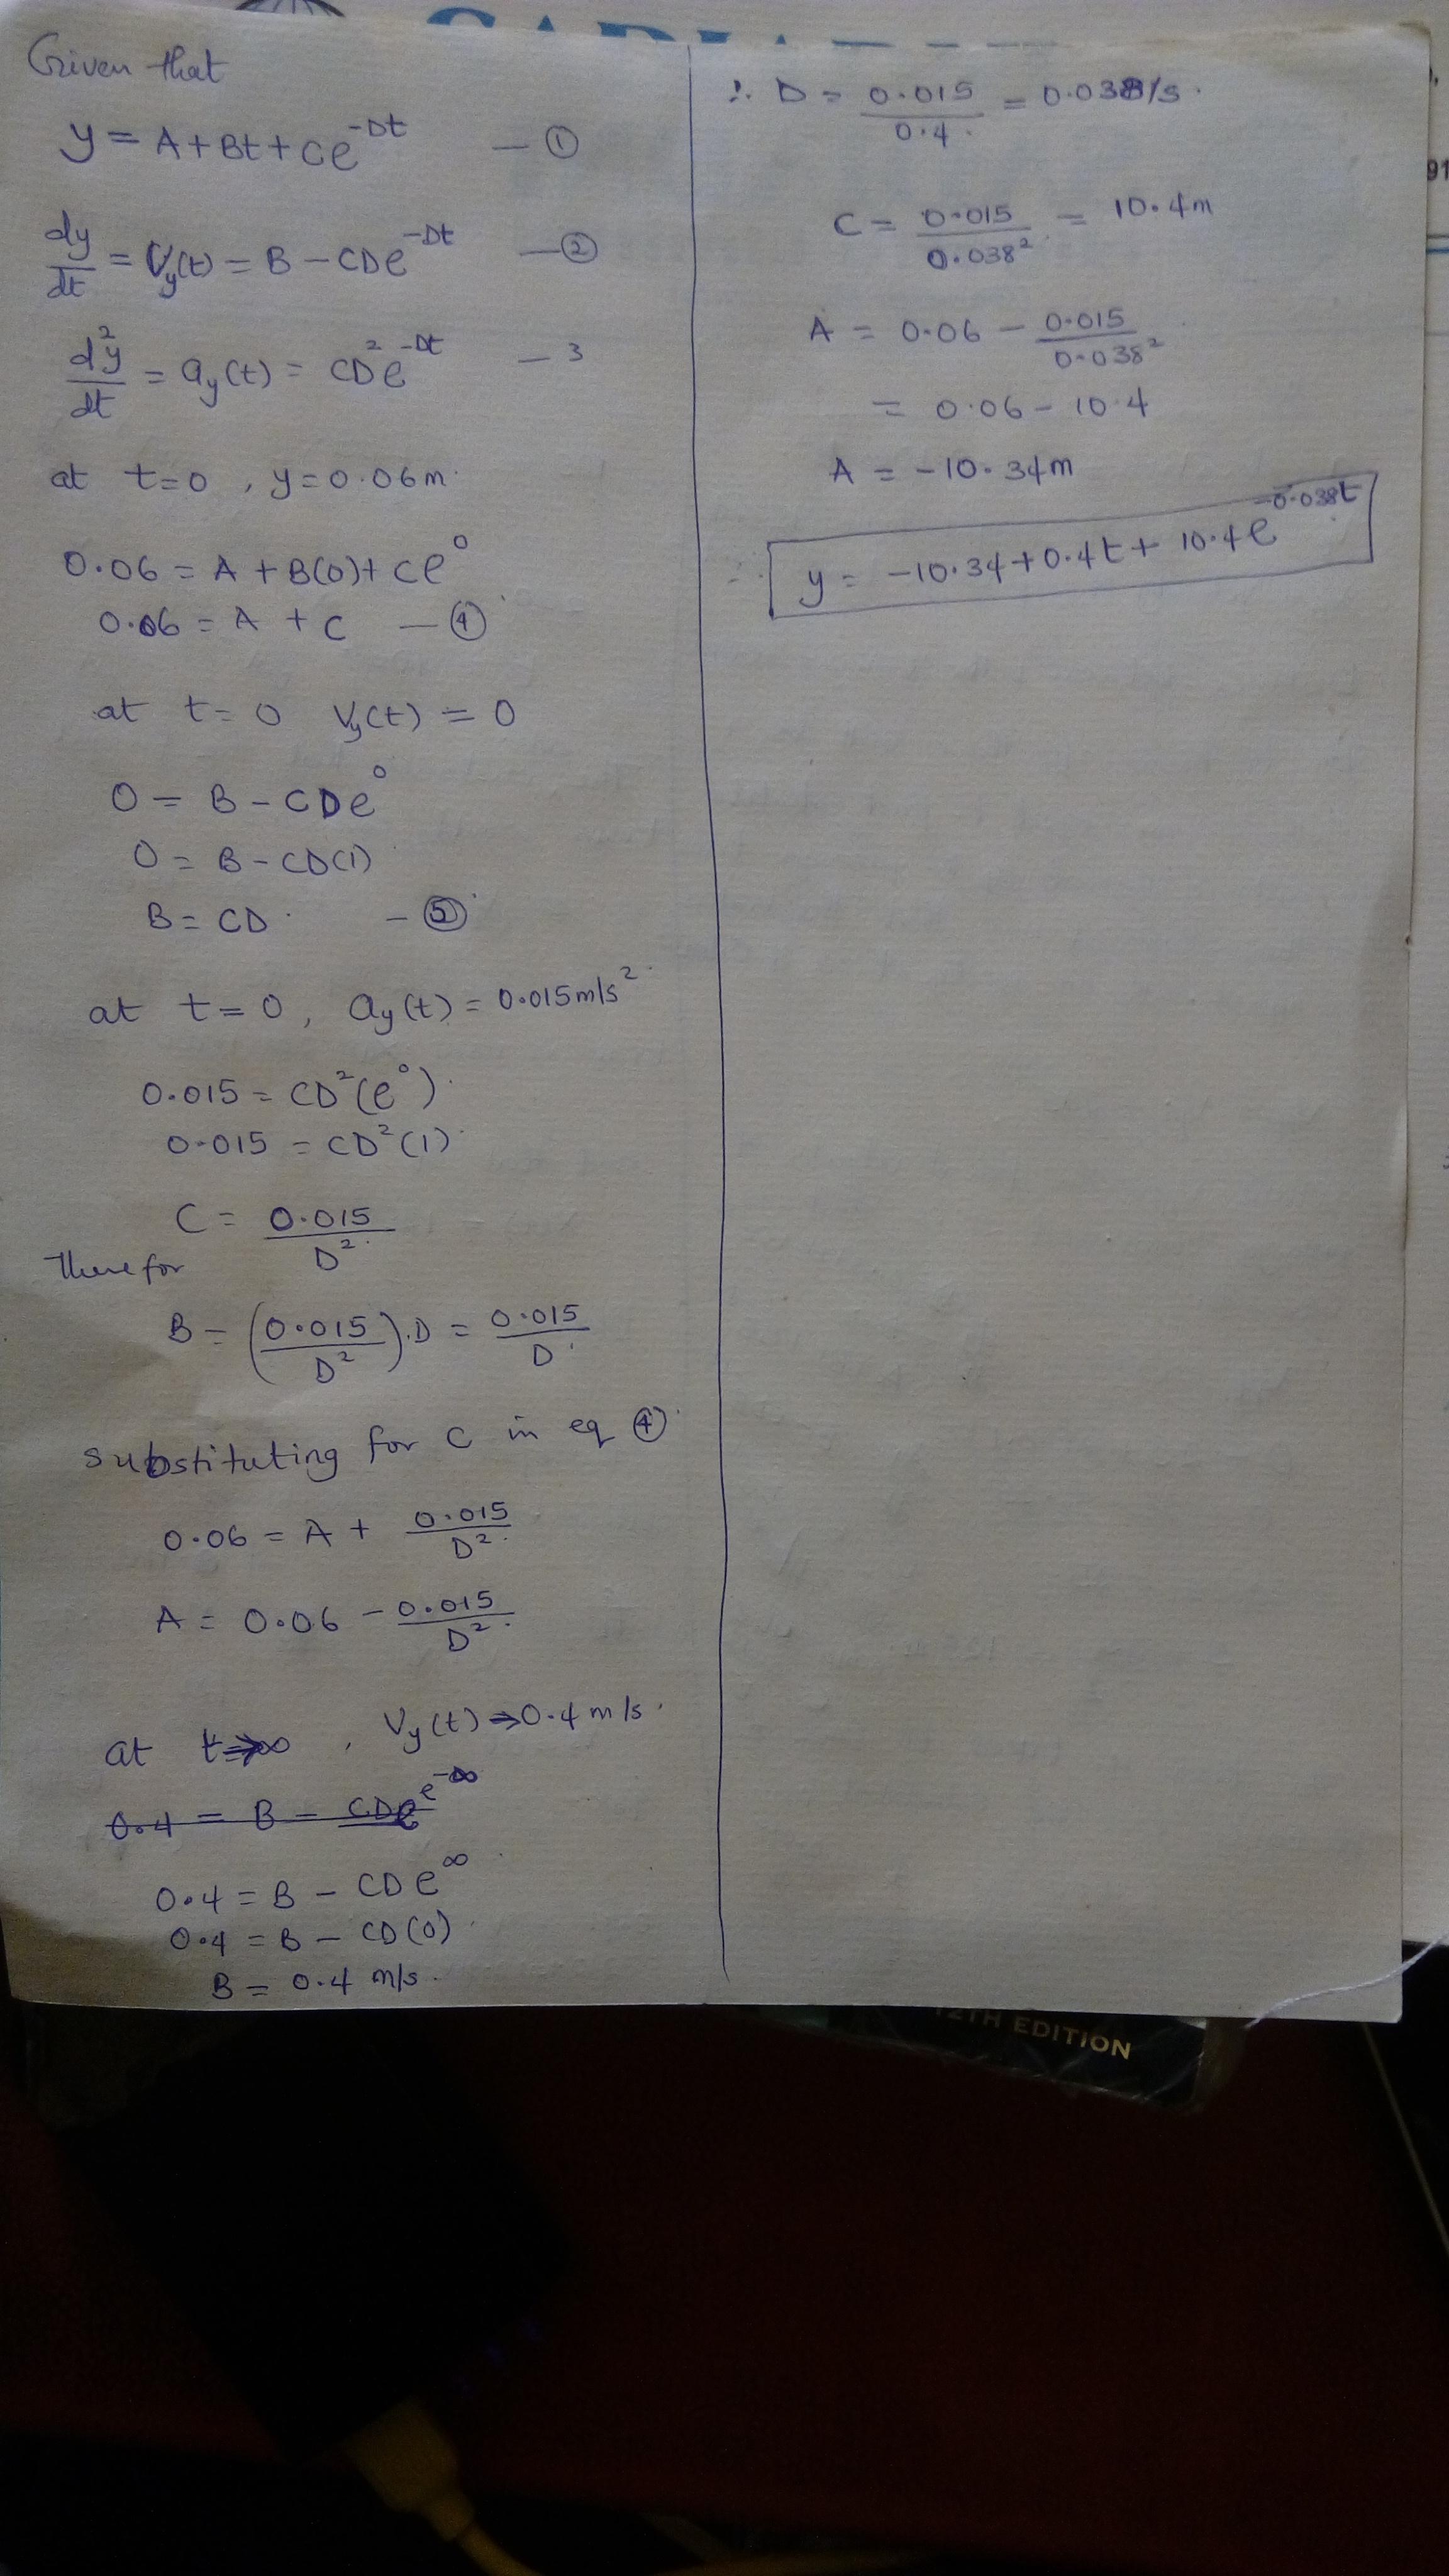 Given that
y = A + Bt + Ce^{-Dt} — ①
dy/dt = Vy(t) = B - CDe^{-Dt} — ②
d²y/dt = ay(t) = CD²e^{-Dt} — 3
at t=0, y=0.06m.
0.06 = A + B(0) + Ce⁰
0.06 = A + C — ④
at t=0 Vy(t) = 0
0 = B - CDe⁰
0 = B - CD(1)
B = CD. - ⑤
at t=0, ay(t) = 0.015m/s².
0.015 = CD²(e⁰).
0.015 = CD²(1).
C = 0.015/D².
Therefor
B = (0.015/D²).D = 0.015/D.
substituting for C in eq ④
0.06 = A + 0.015/D².
A = 0.06 - 0.015/D².
at t→∞, Vy(t) → 0.4 m/s.
0.4 = B - CDe^{-∞}
0.4 = B - CDe^∞
0.4 = B - CD(0)
B = 0.4 m/s.
∴ D = 0.015/0.4 = 0.038/s.
C = 0.015/0.038² = 10.4m
A = 0.06 - 0.015/0.038²
= 0.06 - 10.4
A = -10.34m
∴ y = -10.34 + 0.4t + 10.4e^{-0.038t}
91
12TH EDITION